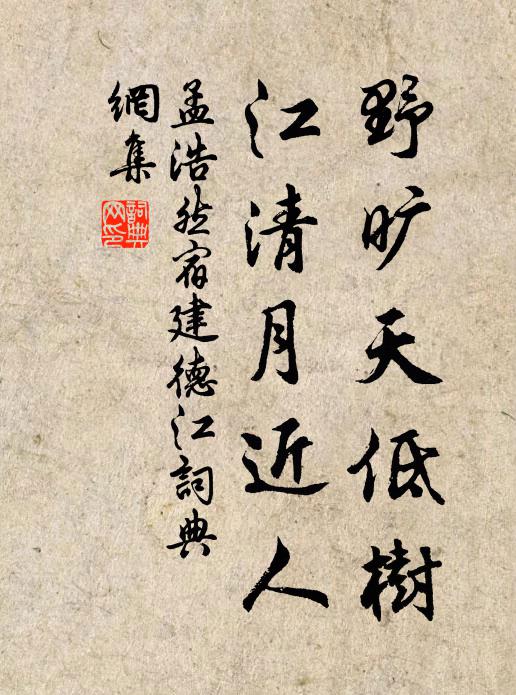 野旷天低樹
江清月近人
孟浩然宿建德江詞典
網集
詞典網印